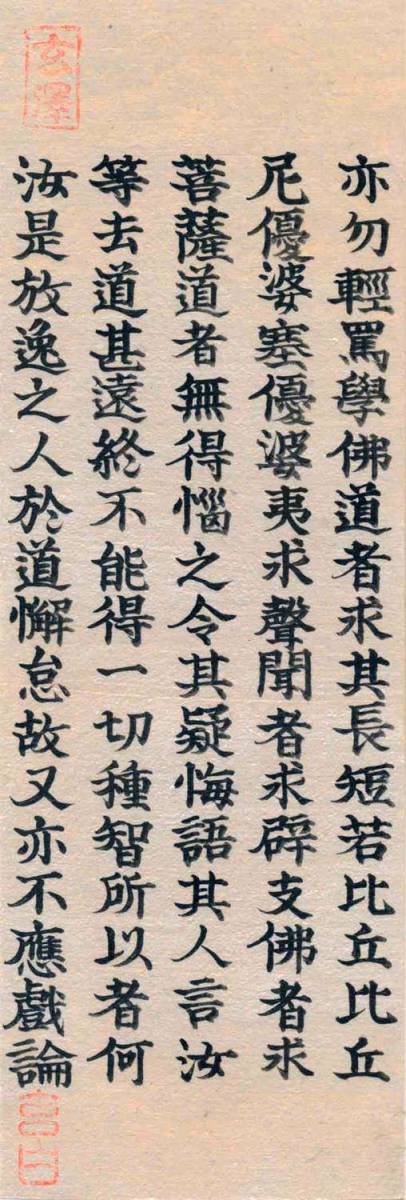 亦勿輕罵學佛道者求其長短若比丘比丘
尼優婆塞優婆夷求聲聞者求辟支佛者求
菩薩道者無得惱之令其疑悔語其人言汝
等去道甚遠終不能得一切種智所以者何
汝是放逸之人於道懈怠故又亦不應戲論
玄澤